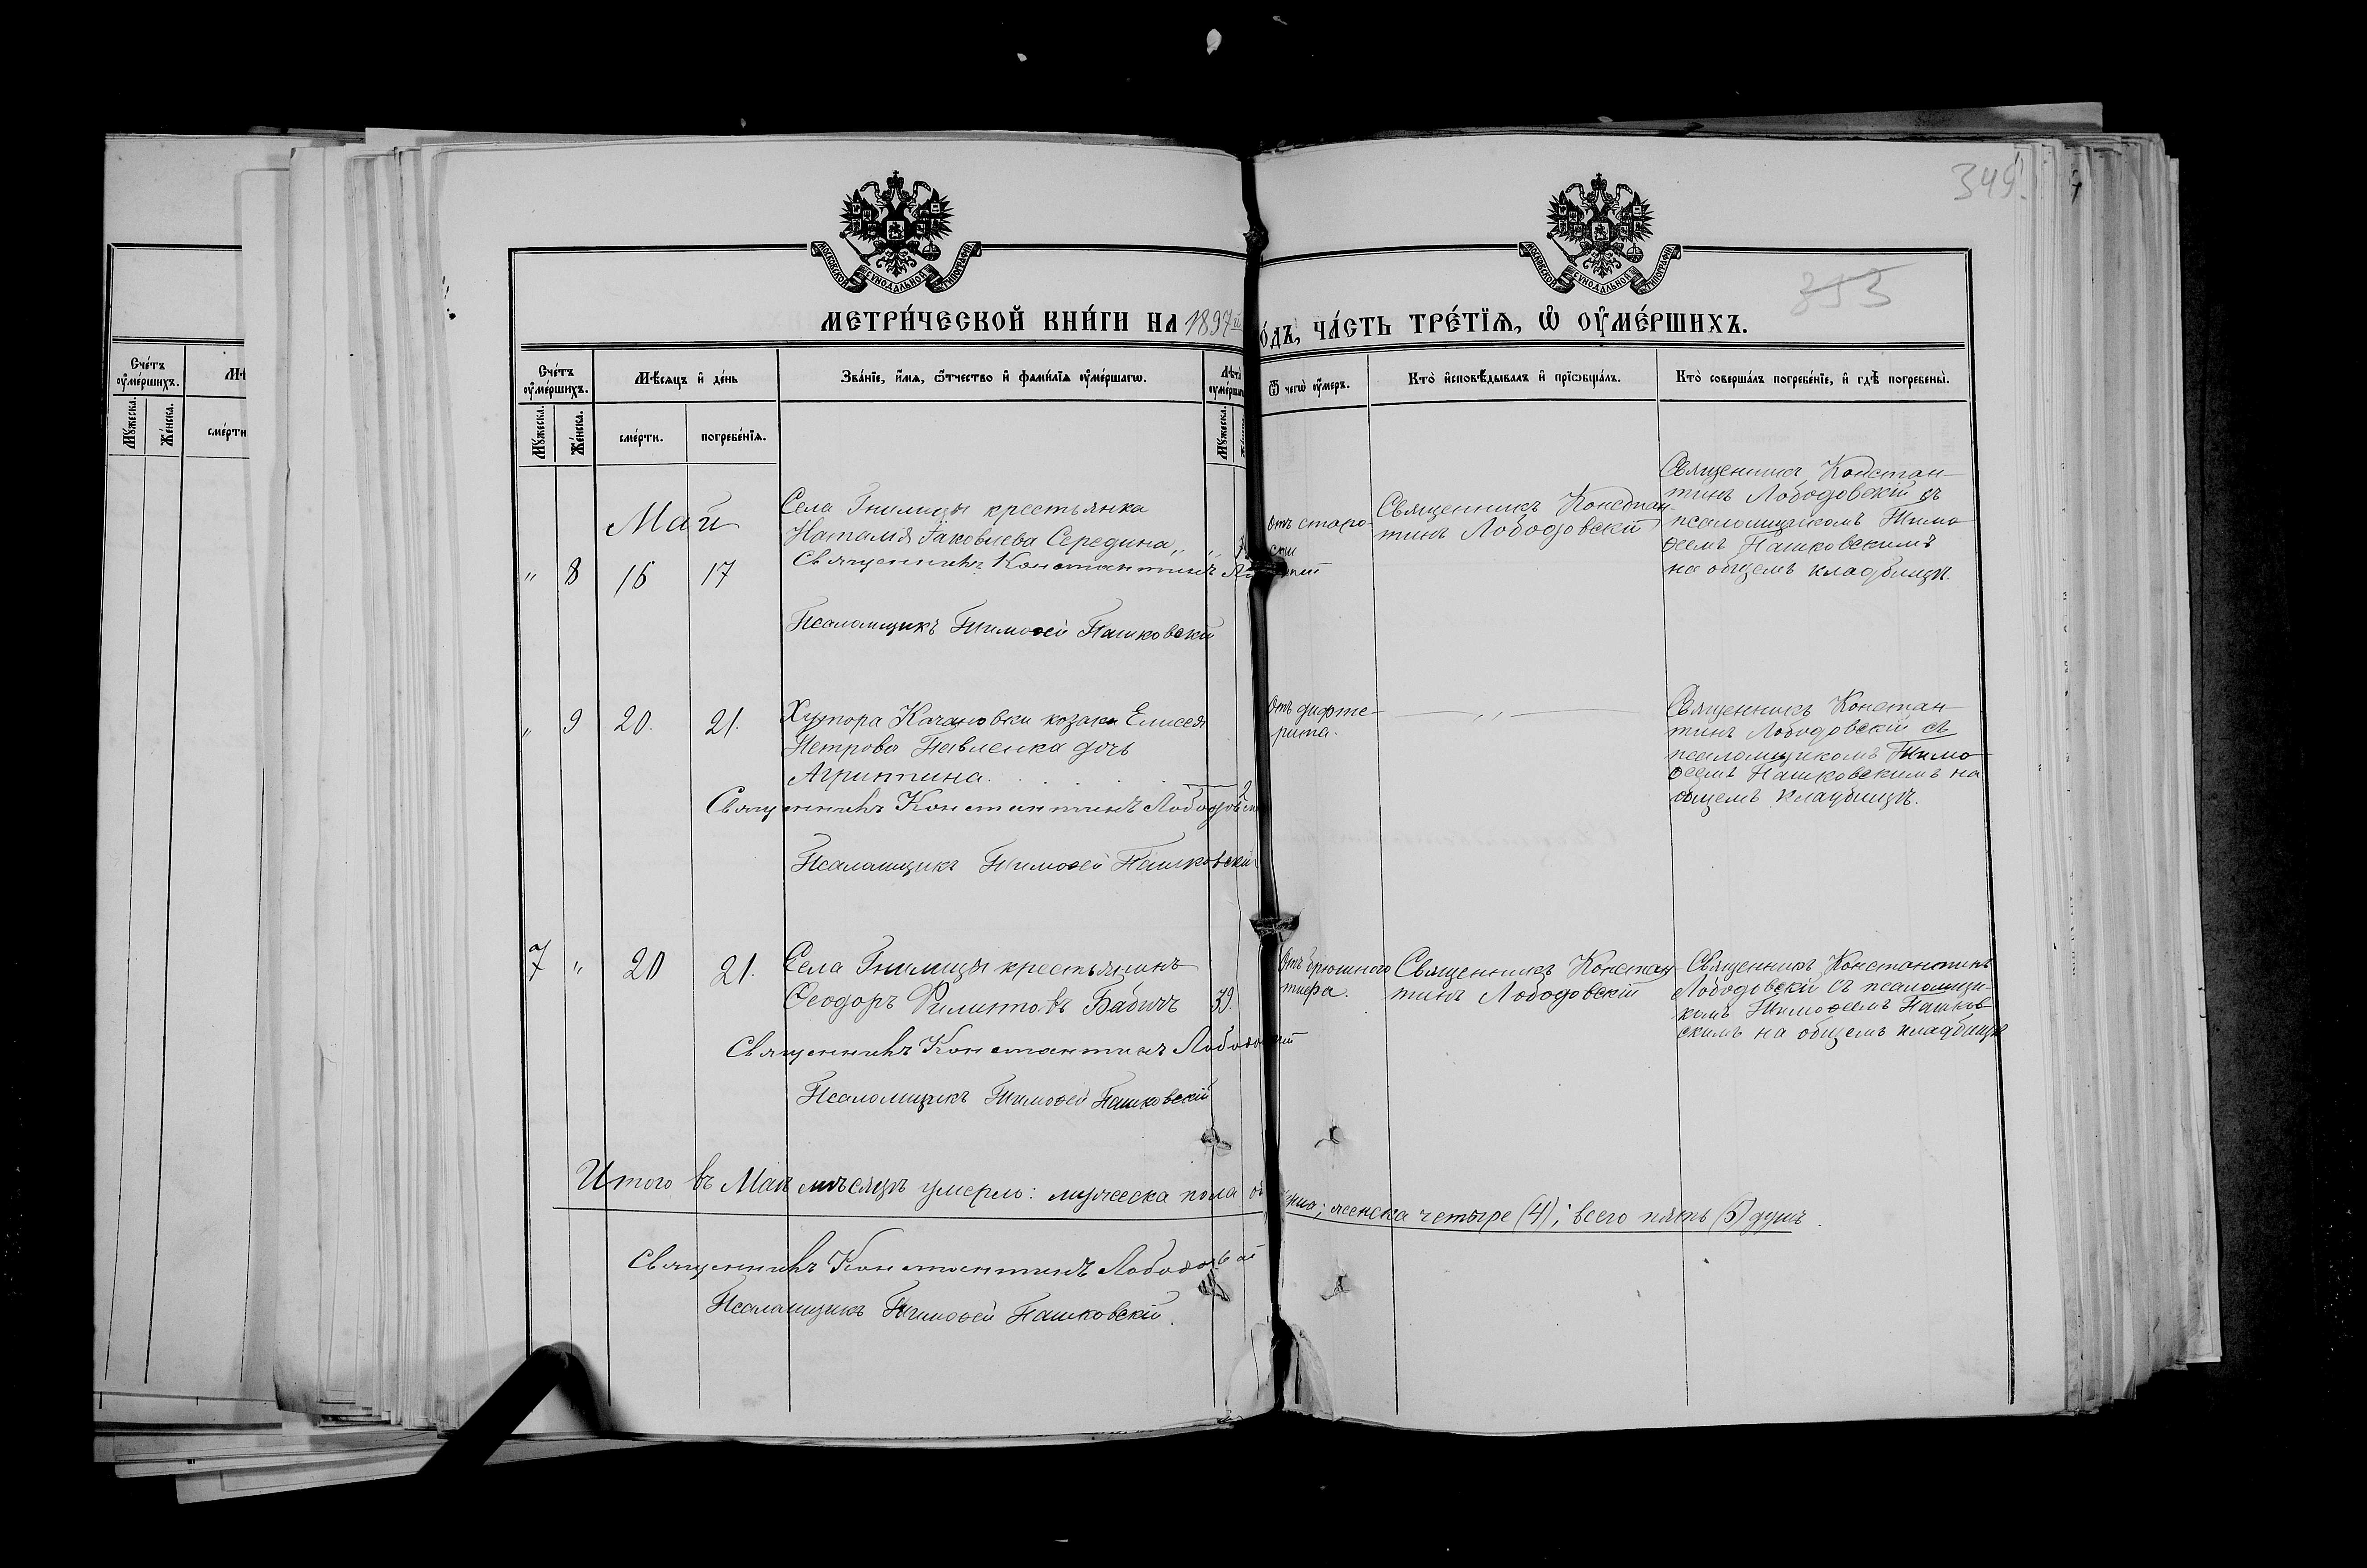 349.
353
МОСКОВСКОЙ СУНОДАЛЬНОЙ ТИПОГРАФІИ
МОСКОВСКОЙ СУНОДАЛЬНОЙ ТИПОГРАФІИ
МЕТРИ́ЧЕСКОЙ КНИ́ГИ НА 1897й
О́ДЪ, ЧА́СТЬ ТРЕ́ТЇѦ, Ѡ҆ ОУ҆МЕ́РШИХЪ.
Сче́тъ
оу҆ме́ршихъ.
Мꙋ́жеска.
Же́нска.
Мѣ́сѧцъ и҆ де́нь
сме́рти.
погребе́нїѧ.
Зва́нїе, и҆́мѧ, ѻ҆́тчество и҆ фами́лїѧ оу҆ме́ршагѡ.
Лѣ́та
оу҆ме́рша
Мꙋ́жеска.
Ѿ чегѡ̀ оу҆́меръ.
Кто̀ и҆сповѣ́дывалъ и҆ прїѡбща́лъ.
Кто̀ соверша́лъ погребе́нїе, и҆ гдѣ̀ погребены̀.
Сче́тъ
оу҆ме́ршихъ.
Мꙋ́жеска.
Же́нска.
сме́рти
Май
" 8 16 17
Села Гнилицы крестьянка
Наталія Іаковлева Середина
Священникъ Константинъ
Псаломщикъ Тимоѳей Пашковскій
отъ старо-
сти
Священникъ Констан-
тинъ Лободовскій
Священникъ Констан-
тинъ Лободовскій съ
псаломщикомъ Тимо-
ѳеемъ Пашковскимъ
на общемъ кладбищѣ.
" 9 20. 21.
Хутора Качановки козака Елисея
Петрова Павленка дочь
Агриппина. . . . . 2
Священникъ Константинъ Лободовскій
Псаломщикъ Тимоѳей Пашковскій
Отъ дифте-
рита.
— „ —
Священникъ Констан-
тинъ Лободовскій съ
псаломщикомъ Тимо-
ѳеемъ Пашковскимъ на
общемъ кладбищѣ.
7 " 20 21.
Села Гнилицы крестьянинъ
Ѳеодоръ Филипповъ Бабичъ 39.
Священникъ Константинъ Лободовскій
Псаломщикъ Тимоѳей Пашковскій
Отъ брюшного
тифа.
Священникъ Констан-
тинъ Лободовскій
Священникъ Константинъ
Лободовскій съ псаломщи-
комъ Тимоѳеемъ Пашков-
скимъ на общемъ кладбищѣ
Итого въ Маѣ мѣсяцѣ умерло: мужеска пола одна; женска четыре (4); всего пять (5) душъ.
Священникъ Константинъ Лободовскій
Псаломщикъ Тимоѳей Пашковскій.